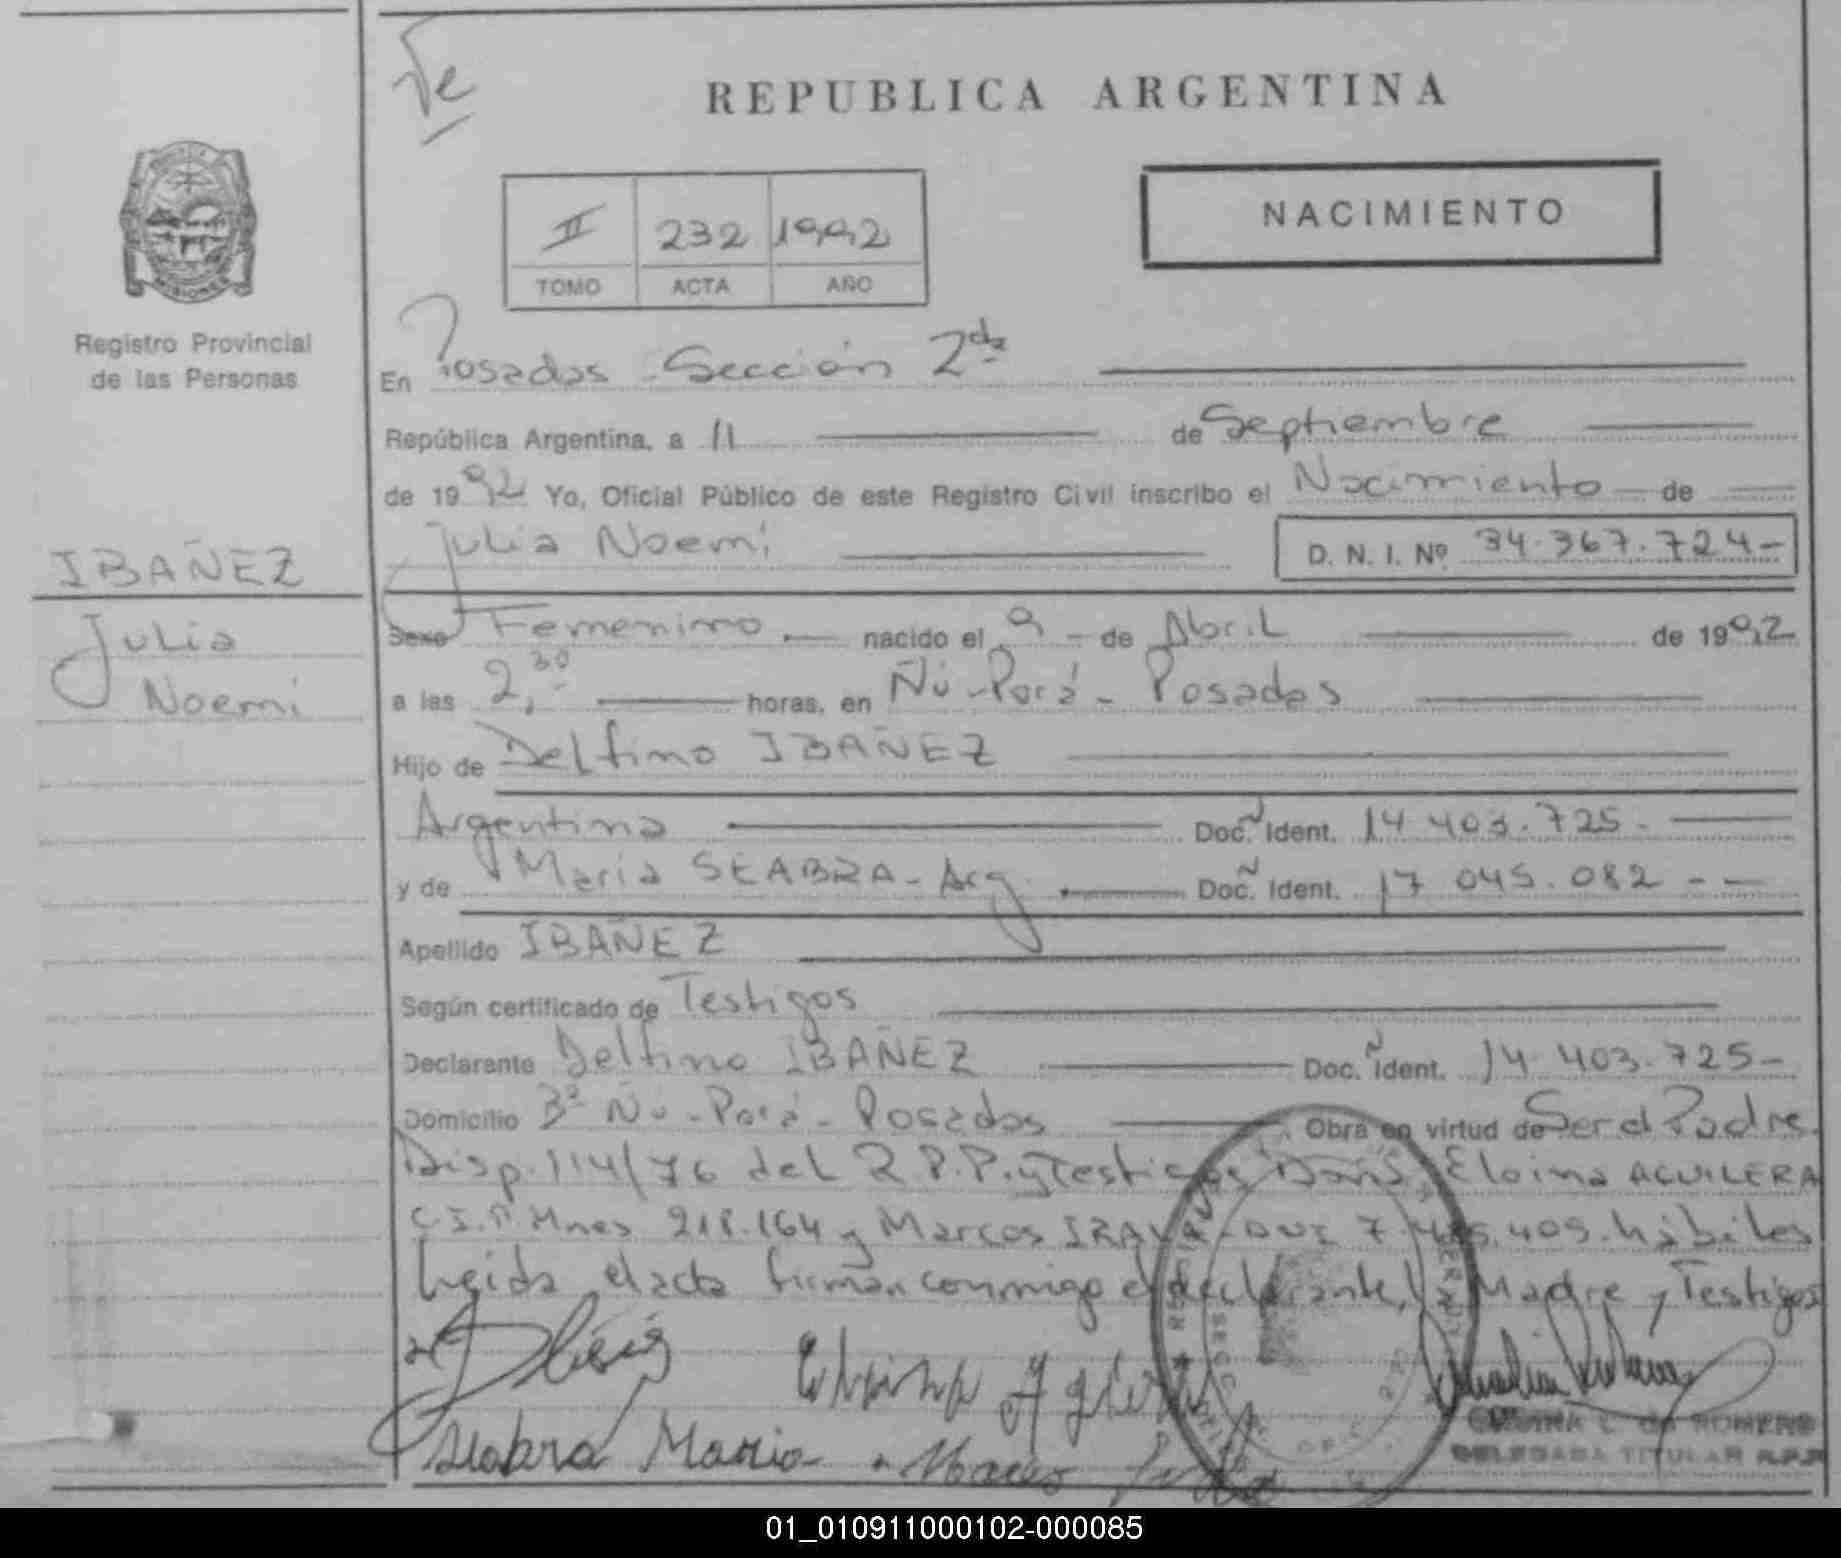 Te
REPUBLICA ARGENTINA
MISIONES
II 232 1992
TOMO ACTA AÑO
NACIMIENTO
Registro Provincial
de las Personas
En Posadas - Sección 2da
República Argentina, a 11 de Septiembre
de 1992 Yo, Oficial Público de este Registro Civil inscribo el Nacimiento de
Julia Noemí D. N. I. Nº 34.367.724-
IBAÑEZ
Julia
Noemí
Sexo Femenino nacido el 9 - de Abril de 1992
a las 2,30 horas, en Ñu-Porá - Posadas
Hijo de Delfino IBAÑEZ
Argentina Doc. Ident. 14.403.725.
y de María SEABRA - Arg. Doc. Ident. 17.045.082 - -
Apellido IBAÑEZ
Según certificado de Testigos
Declarante Delfino IBAÑEZ Doc. Ident. 14.403.725-
Domicilio Bº Ñu-Porá - Posadas Obra en virtud de Ser el Padre.
Disp. 114/76 del R.P.P. y Testigos Eloina AGUILERA
C.I.P. Mnes 218.164 y Marcos DNI 7. .409. hábiles
Leida el acta firman conmigo el declarante, la Madre y Testigos
Seabra Maria
Marcos
C. de ROMERO
DELEGADA TITULAR R.P.P.
01_010911000102-000085